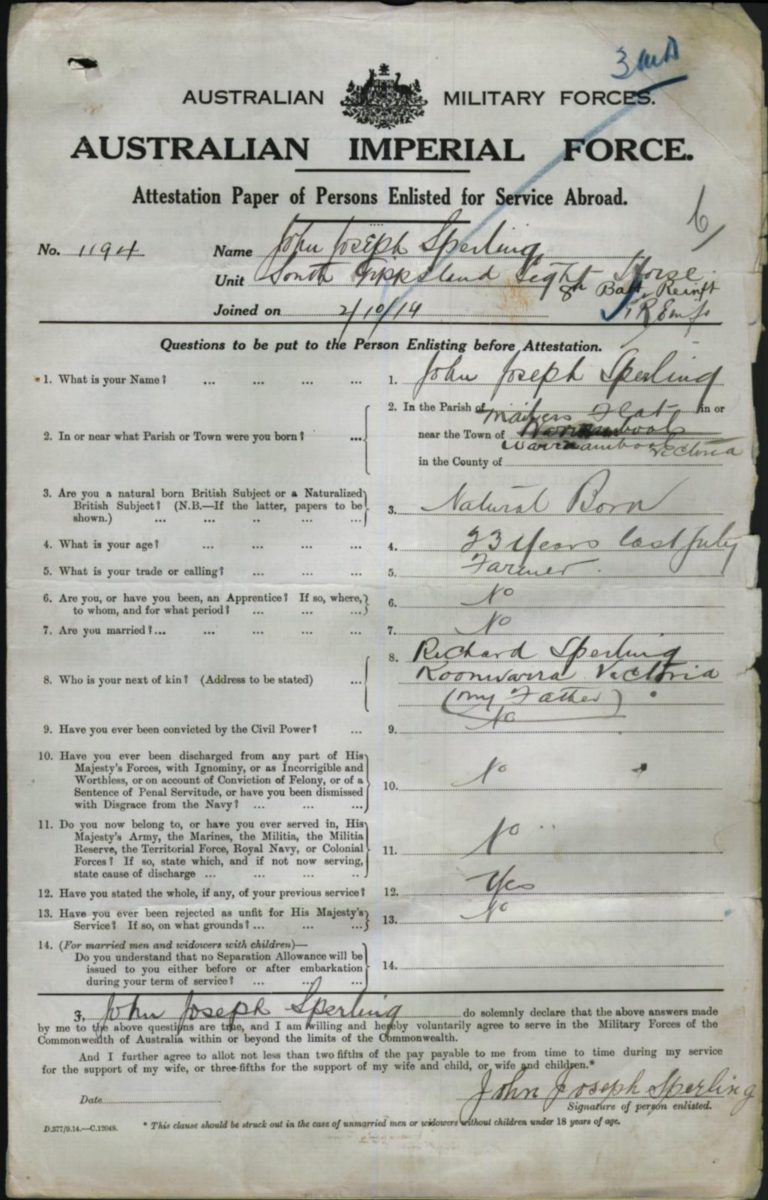 AUSTRALIAN MILITARY FORCES.
AUSTRALIAN IMPERIAL FORCE.
Attestation Paper of Persons Enlisted for Service Abroad.
6/
No. 1194 Name John Joseph Sperling
Unit South Gippsland Light Horse
8th Batt. Reinft
Joined on 2/10/14
Questions to be put to the Person Enlisting before Attestation.
1. What is your Name? ... ... ... ... 1. John Joseph Sperling
2. In or near what Parish or Town were you born? ... 2. In the Parish of Mailers Flat in or
near the Town of Warrnambool
Warrnambool Victoria
in the County of
3. Are you a natural born British Subject or a Naturalized
British Subject? (N.B.—If the latter, papers to be
shown.) ... ... ... ... ... 3. Natural Born
4. What is your age? ... ... ... ... 4. 23 Years last July
5. What is your trade or calling? ... ... ... 5. Farmer.
6. Are you, or have you been, an Apprentice? If so, where,
to whom, and for what period? ... ... ... 6. No
7. Are you married?... ... ... ... ... 7. No
8. Who is your next of kin? (Address to be stated) ... 8. Richard Sperling
Koonwarra Victoria
(my Father)
9. Have you ever been convicted by the Civil Power? ... 9. No
10. Have you ever been discharged from any part of His
Majesty's Forces, with Ignominy, or as Incorrigible and
Worthless, or on account of Conviction of Felony, or of a
Sentence of Penal Servitude, or have you been dismissed
with Disgrace from the Navy? ... ... ... 10. No
11. Do you now belong to, or have you ever served in, His
Majesty's Army, the Marines, the Militia, the Militia
Reserve, the Territorial Force, Royal Navy, or Colonial
Forces? If so, state which, and if not now serving,
state cause of discharge ... ... ... ... 11. No
12. Have you stated the whole, if any, of your previous service? 12. Yes
13. Have you ever been rejected as unfit for His Majesty's
Service? If so, on what grounds? ... ... ... 13. No
14. (For married men and widowers with children)—
Do you understand that no Separation Allowance will be
issued to you either before or after embarkation
during your term of service? ... ... ... 14.
I, John Joseph Sperling do solemnly declare that the above answers made
by me to the above questions are true, and I am willing and hereby voluntarily agree to serve in the Military Forces of the
Commonwealth of Australia within or beyond the limits of the Commonwealth.
And I further agree to allot not less than two fifths of the pay payable to me from time to time during my service
for the support of my wife, or three-fifths for the support of my wife and child, or wife and children.*
John Joseph Sperling
Date Signature of person enlisted.
D.277/9.14.—C.12048. * This clause should be struck out in the case of unmarried men or widowers without children under 18 years of age.